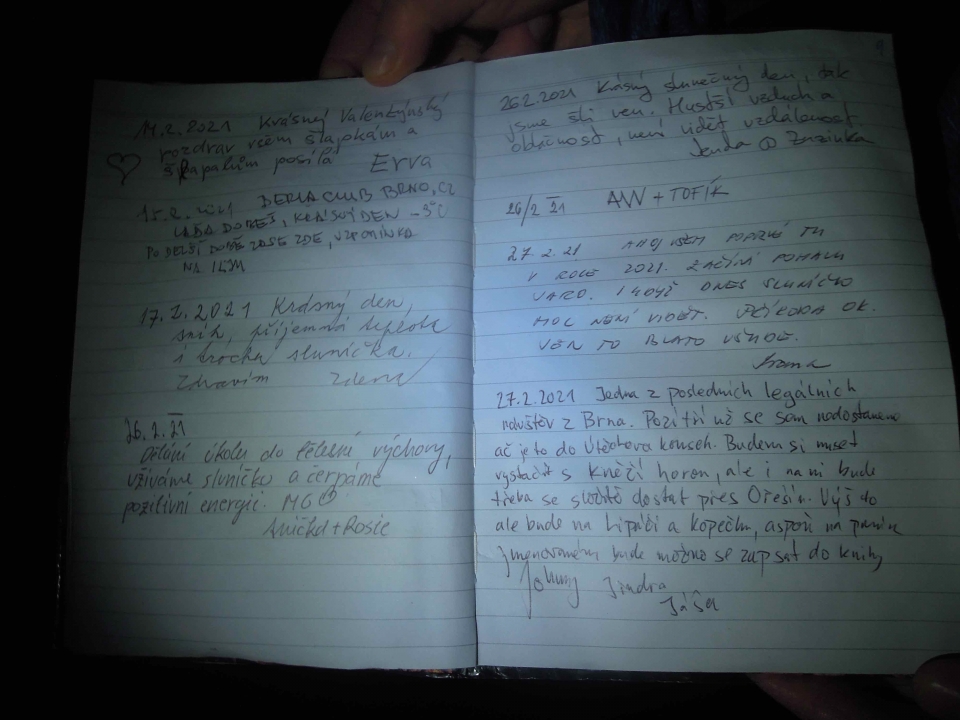 14.2.2021 Krásný Valentýnský
pozdrav všem šlapkám a
šlapalům posílá Erva
15.2.2021 BERTA CLUB BRNO, CZ
LÁBA DOTKEŠ, KRÁSNÝ DEN -3°C
PO DELŠÍ DOBĚ ZASE ZDE, VZPOMÍNKA
NA
17.2.2021 Krásný den,
sníh, příjemná teplota
i trocha sluníčka.
Zdravím Zdena
26.2.21
Plnění úkolu do tělesné výchovy,
užíváme sluníčko a čerpáme
pozitivní energii. MG
Anička + Rosie
26.2.2021 Krásný slunečný den, tak
jsme šli ven. Hustší vzduch a
oblačnost, není vidět vzdálenost.
Jenda @ Zuzinka
26/2 21 ANN + TOFÍK
27.2.21 AHOJ VŠEM POPRVÉ TU
V ROCE 2021. ZAČÍNÁ POMALU
JARO. I KDYŽ DNES SLUNÍČKO
MOC NENÍ VIDĚT. PŘÍRODA OK.
JEN TO BLATO VŠUDE.
27.2.2021 Jedna z posledních legálních
návštěv z Brna. Pozítří už se sem nedostaneme
ač je to do Útěchova kousek. Budem si muset
vystačit s Kněží horou, ale i na ni bude
třeba se složitě dostat přes Ořešín. Výš do
ale budo na Lipůbí a kopečku, aspoň na prvním
jmenovaném bude možno se zapsat do knihy
Johnny Jindra
Jáša